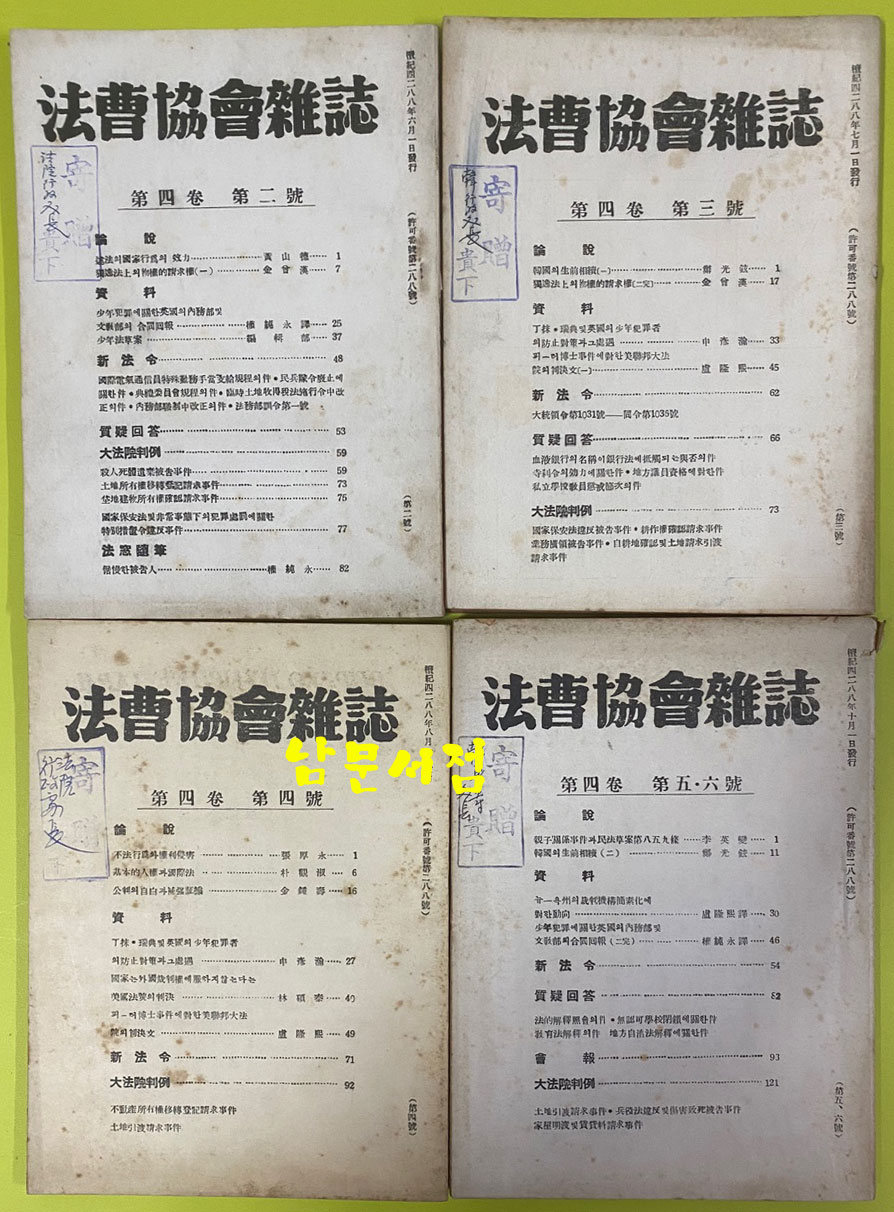 檀紀四二八八年六月一日發行
法曹協會雜誌
寄贈
貴下
第四卷 第二號
(許可番號第二八八號)
論 說
違法의國家行爲의 效力 黃山德 1
獨逸法上의物權的請求權(一) 金曾漢 7
資 料
少年犯罪에關한英國의內務部및
文敎部의 合同回報 權純永譯 25
少年法草案 編輯部 37
新法令 48
國際電氣通信員特殊勤務手當支給規程의件·民兵隊令廢止에
關한件·典禮委員會規程의件·臨時土地收得稅法施行令中改
正의件·內務部職制中改正의件·法務部訓令第一號
質疑回答 53
大法院判例 59
殺人死體遺棄被告事件 59
土地所有權移轉登記請求事件 73
垈地建物所有權確認請求事件 75
國家保安法및非常事態下의犯罪處罰에關한
特別措置令違反事件 77
法窓隨筆
權純永 82
(第二號)
檀紀四二八八年七月一日發行
法曹協會雜誌
寄贈
貴下
第四卷 第三號
(許可番號第二八八號)
論 說
韓國의生前相續(一) 鄭光鉉 1
獨逸法上의物權的請求權(二完) 金曾漢 17
資 料
丁抹·瑞典및英國의少年犯罪者
의防止對策과그處遇 申彦瀚 33
피—터博士事件에對한美聯邦大法
院의判決文(一) 盧隆熙 45
新法令 62
大統領令第1031號——同令第1036號
質疑回答 66
血液銀行의名稱이銀行法에抵觸되는與否의件
寺刹令의効力에關한件·地方議員資格에對한件
私立學校敎員懲戒節次의件
大法院判例 73
國家保安法違反被告事件·耕作權確認請求事件
業務橫領被告事件·自耕地確認및土地請求引渡
請求事件
(第三號)
檀紀四二八八年八月
法曹協會雜誌
남문서점
寄贈
法院行政處長
第四卷 第四號
(許可番號第二八八號)
論 說
不法行爲와權利侵害 張厚永 1
基本的人權과國際法 朴觀淑 6
公判의自白과補强証據 金鍾壽 16
資 料
丁抹·瑞典및英國의少年犯罪者
의防止對策과그處遇 申彦瀚 27
國家는外國裁判權에服하지않는다는
美國法院의判決 林碩泰 40
피—터博士事件에對한美聯邦大法
院의判決文 盧隆熙 49
新法令 71
大法院判例 92
不動產所有權移轉登記請求事件
土地引渡請求事件
(第四號)
檀紀四二八八年十月一日發行
法曹協會雜誌
寄贈
貴下
第四卷 第五·六號
(許可番號第二八八號)
論 說
親子關係事件과民法草案第八五九條 李英燮 1
韓國의生前相續(二) 鄭光鉉 11
資 料
뉴—욕州의裁判機構簡素化에
對한動向 盧隆熙譯 30
少年犯罪에關한英國의內務部및
文敎部의合同回報(二完) 權純永譯 46
新法令 54
質疑回答 82
法的解釋照會의件·無認可學校閉鎖에關한件
敎育法解釋의件 地方自治法解釋에關한件
會報 93
大法院判例 121
土地引渡請求事件·兵役法違反및傷害致死被告事件
家屋明渡및賃貸料請求事件
(第五、六號)